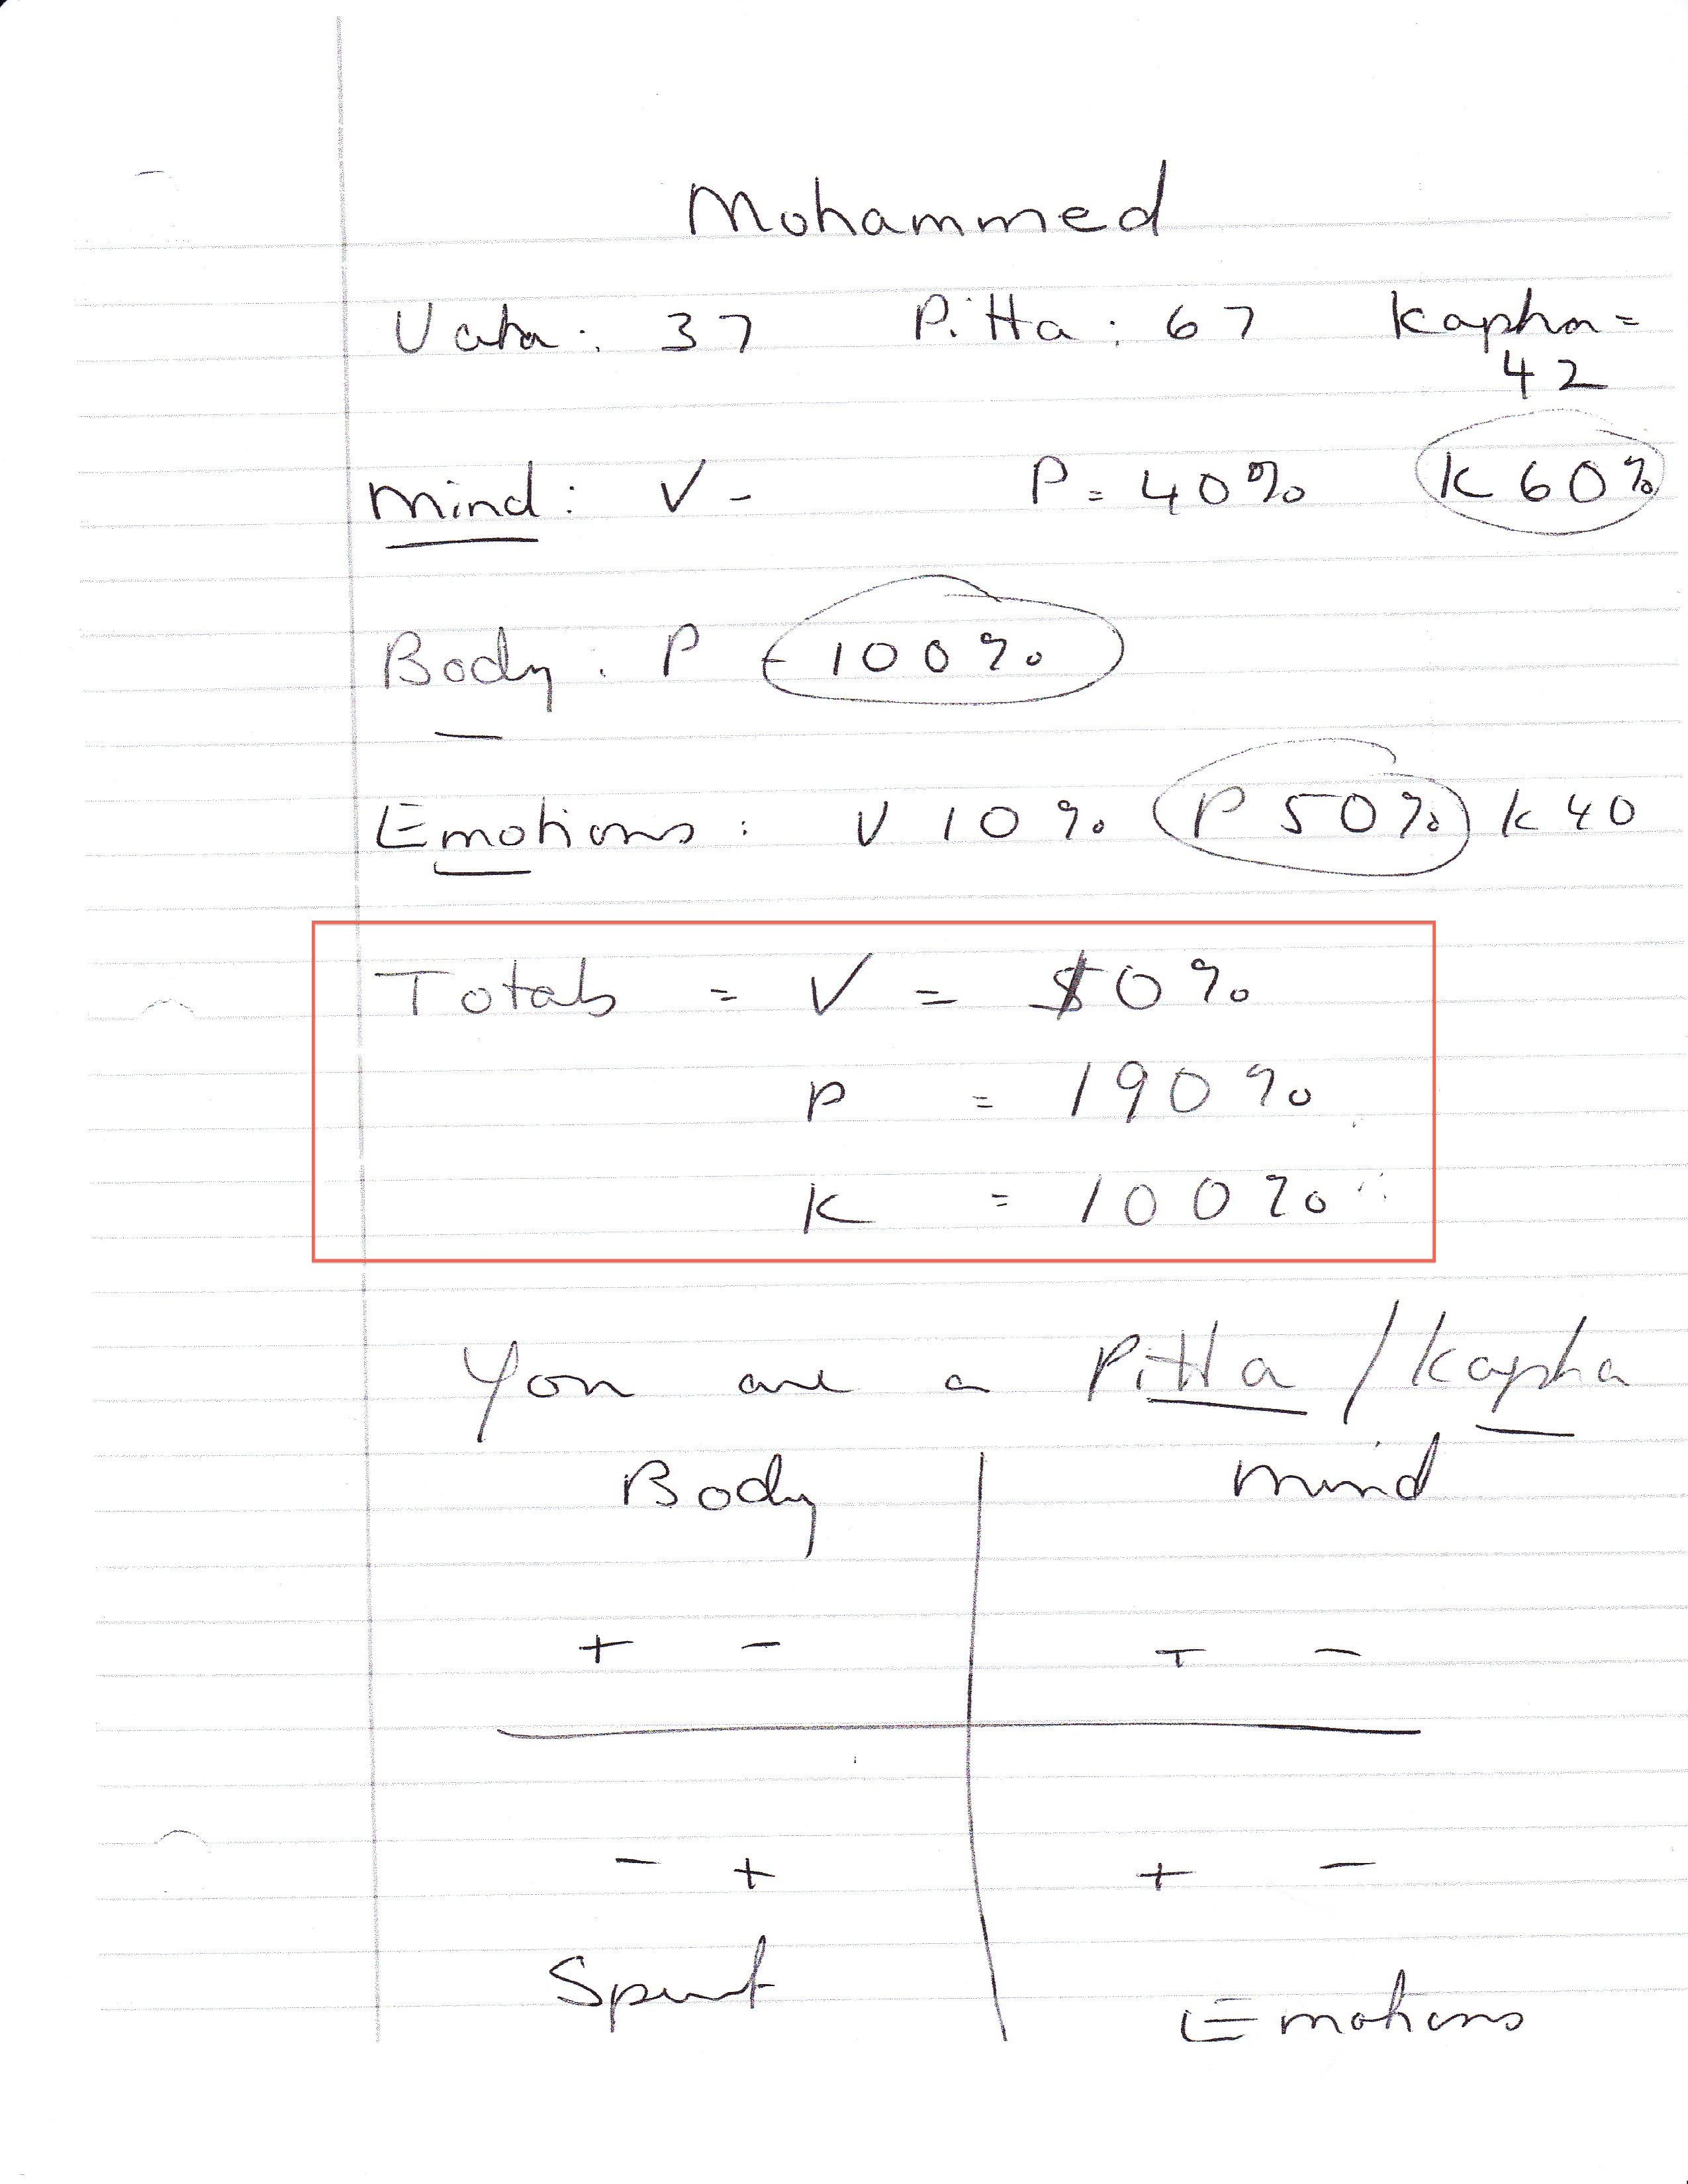 Mohammed
Vata: 37 Pitta: 67 Kapha =
42
Mind: V - P = 40% K 60%
Body: P - 100%
Emotions: V 10% P 50% K 40
Totals = V = 10%
P = 190%
K = 100%
You are a Pitta / Kapha
Body Mind
+ - + -
- + + -
Spirit Emotions